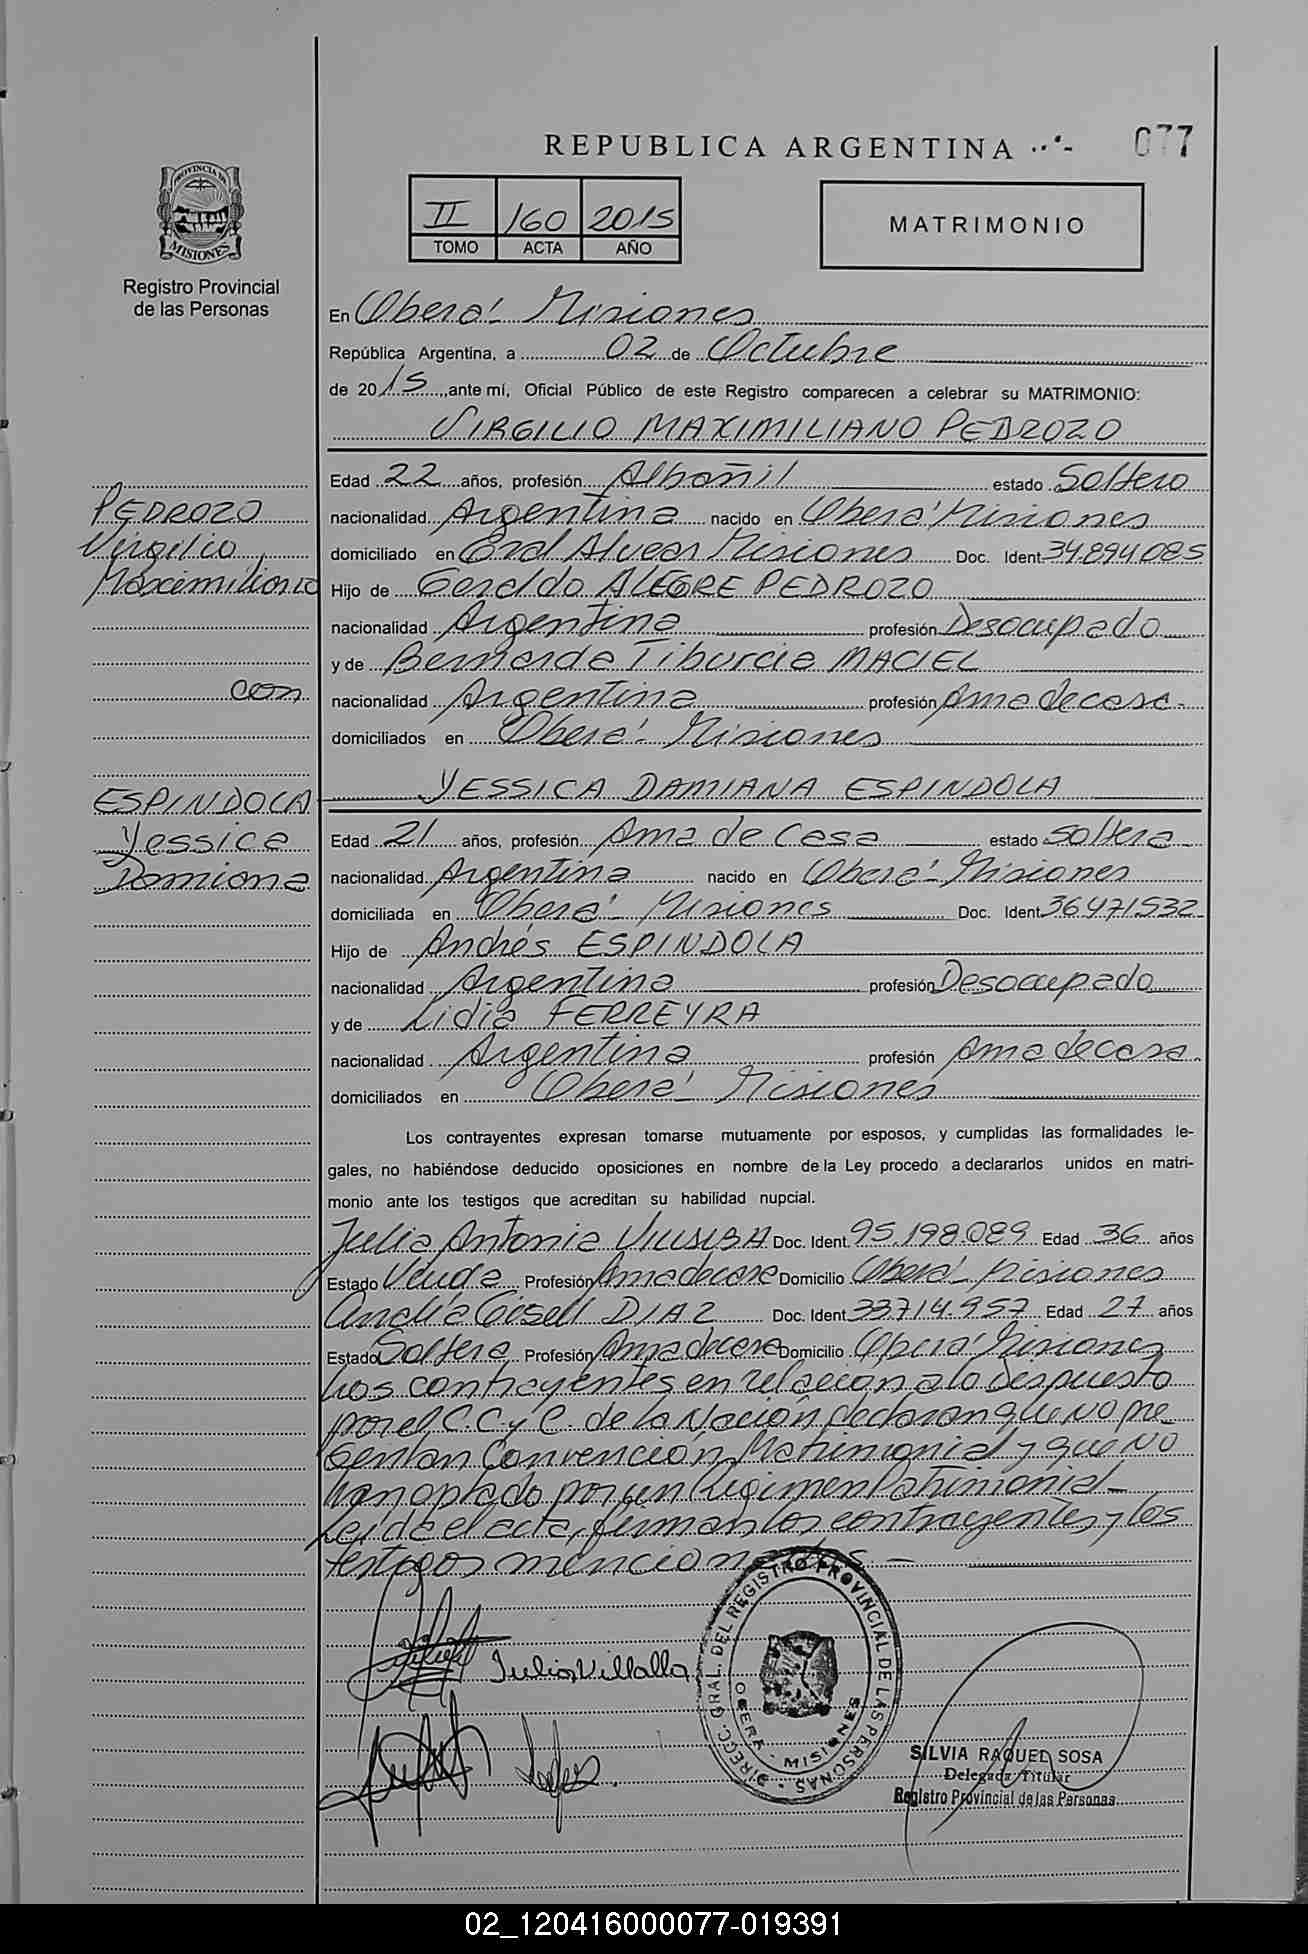 REPUBLICA ARGENTINA
077
II 160 2015
TOMO ACTA AÑO
MATRIMONIO
PROVINCIA DE
MISIONES
Registro Provincial
de las Personas
En Oberá - Misiones
República Argentina, a 02 de Octubre
de 2015, ante mí, Oficial Público de este Registro comparecen a celebrar su MATRIMONIO:
VIRGILIO MAXIMILIANO PEDROZO
Edad 22 años, profesión Albañil estado Soltero
nacionalidad Argentina nacido en Oberá Misiones
domiciliado en Gral Alvear Misiones Doc. Ident. 34.894.085
Hijo de Geraldo ALEGRE PEDROZO
nacionalidad Argentina profesión Desocupado
y de Bernarda Tiburcia MACIEL
nacionalidad Argentina profesión Ama de casa.
domiciliados en Oberá - Misiones
PEDROZO
Virgilio
Maximiliano
con
ESPINDOLA
Yessica
Damiana
YESSICA DAMIANA ESPINDOLA
Edad 21 años, profesión Ama de Casa estado soltera
nacionalidad Argentina nacido en Oberá - Misiones
domiciliada en Oberá - Misiones Doc. Ident 36.471.532
Hijo de Andrés ESPINDOLA
nacionalidad Argentina profesión Desocupado
y de Lidia FERREYRA
nacionalidad Argentina profesión Ama de casa.
domiciliados en Oberá - Misiones
Los contrayentes expresan tomarse mutuamente por esposos, y cumplidas las formalidades le-
gales, no habiéndose deducido oposiciones en nombre de la Ley procedo a declararlos unidos en matri-
monio ante los testigos que acreditan su habilidad nupcial.
Julia Antonia Doc. Ident. 95.198.089 Edad 36 años
Estado Viuda Profesión Ama de casa Domicilio Oberá - Misiones
Gisell DIAZ Doc. Ident 33.714.957 Edad 27 años
Estado Soltera Profesión Ama de casa Domicilio Oberá Misiones
Los contrayentes en relación a lo Dispuesto
por el C.C.y C. de la Nación declaran que no pre-
sentan Convención Matrimonial y que no
han optado por un Régimen Patrimonial -
Leída el acta, firman los contrayentes y los
testigos mencionados. -
Julia Villalla
DIREGC. GRAL. DEL REGISTRO PROVINCIAL DE LAS PERSONAS
OBERA - MISIONES
SILVIA RAQUEL SOSA
Delegada Titular
Registro Provincial de las Personas
02_120416000077-019391